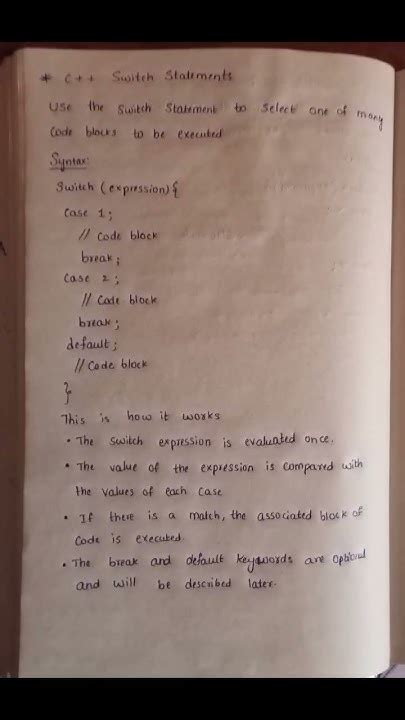 * C++ Switch Statements
Use the Switch Statement to Select one of many
Code blocks to be executed
Syntax:
Switch (expression){
Case 1;
// Code block
break;
Case 2;
// Code block
break;
default;
// Code block
}
This is how it works
• The switch expression is evaluated once.
• The value of the expression is compared with
the values of each Case
• If there is a match, the associated block of
Code is executed.
• The break and default keywords are optional
and will be described later.